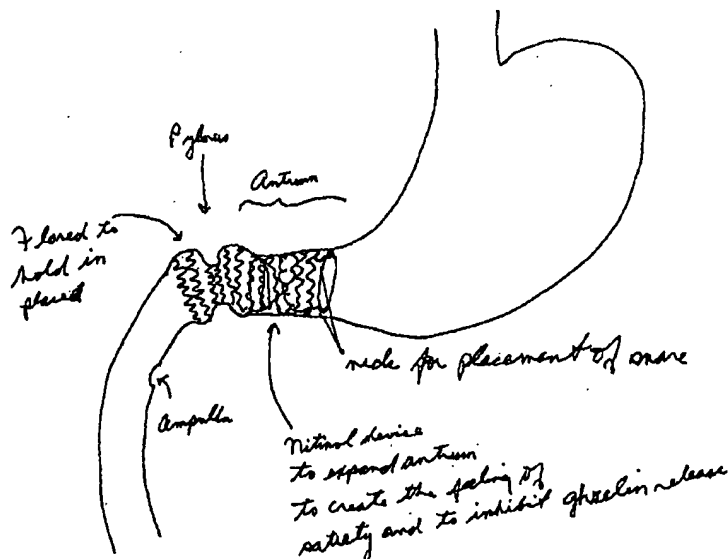 Pylorus
Antrum
Flared to
hold in
placed
Ampulla
nick for placement of snare
Nitinol device
to expand antrum
to create the feeling of
satiety and to inhibit ghrelin release